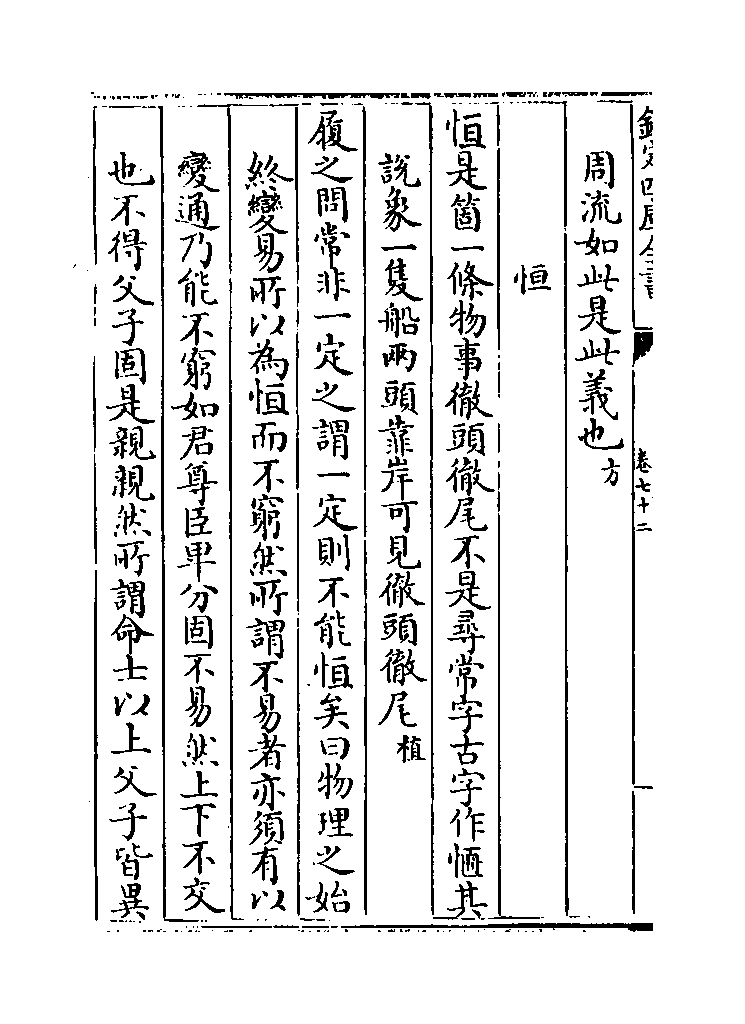 欽定四庫全書
卷七十二
周流如此是此義也方
恒
恒是箇一條物事徹頭徹尾不是尋常字古字作恆其
說象一隻船兩頭靠岸可見徹頭徹尾植
履之問常非一定之謂一定則不能恒矣曰物理之始
終變易所以為恒而不窮然所謂不易者亦須有以
變通乃能不窮如君尊臣卑分固不易然上下不交
也不得父子固是親親然所謂命士以上父子皆異